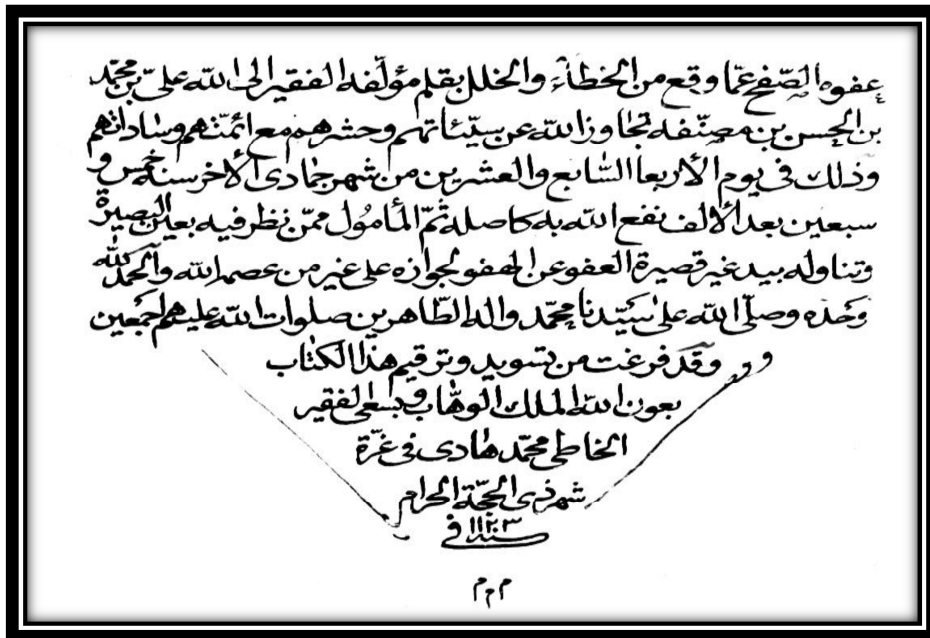 عفوه الصّفح عمّا وقع من الخطاء والخلل بقلم مؤلّفه الفقير الى الله علىّ بن محمّد
بن الحسن بن مصنّفه تجاوز الله عن سيّئاتهم وحشرهم مع ائمّتهم وساداتهم
وذلك فى يوم الأربعا السّابع والعشرين من شهر جمادى الأخر سنه خمس و
سبعين بعد الالف نفع الله به كاصله ثمّ المأمُول ممّن نظر فيه بعين البصيرة
وتناوله بيد غير قصيرة العفو عن الهفو لجوازه على غير من عصم الله والحمد لله
وَحْدَه وصلّى الله على سيّدنا محمّد واله الطّاهرين صلوات الله عليهم اجمعين
و وقد فرغت من تسويد وترقيم هذا الكتاب
بعون الله الملك الوهّاب وبسعى الفقير
الخاطى محمّد هادى فى غرّة
شهر ذى الحجّة الحرام
فى سنة ١١٢٠٣
م م م